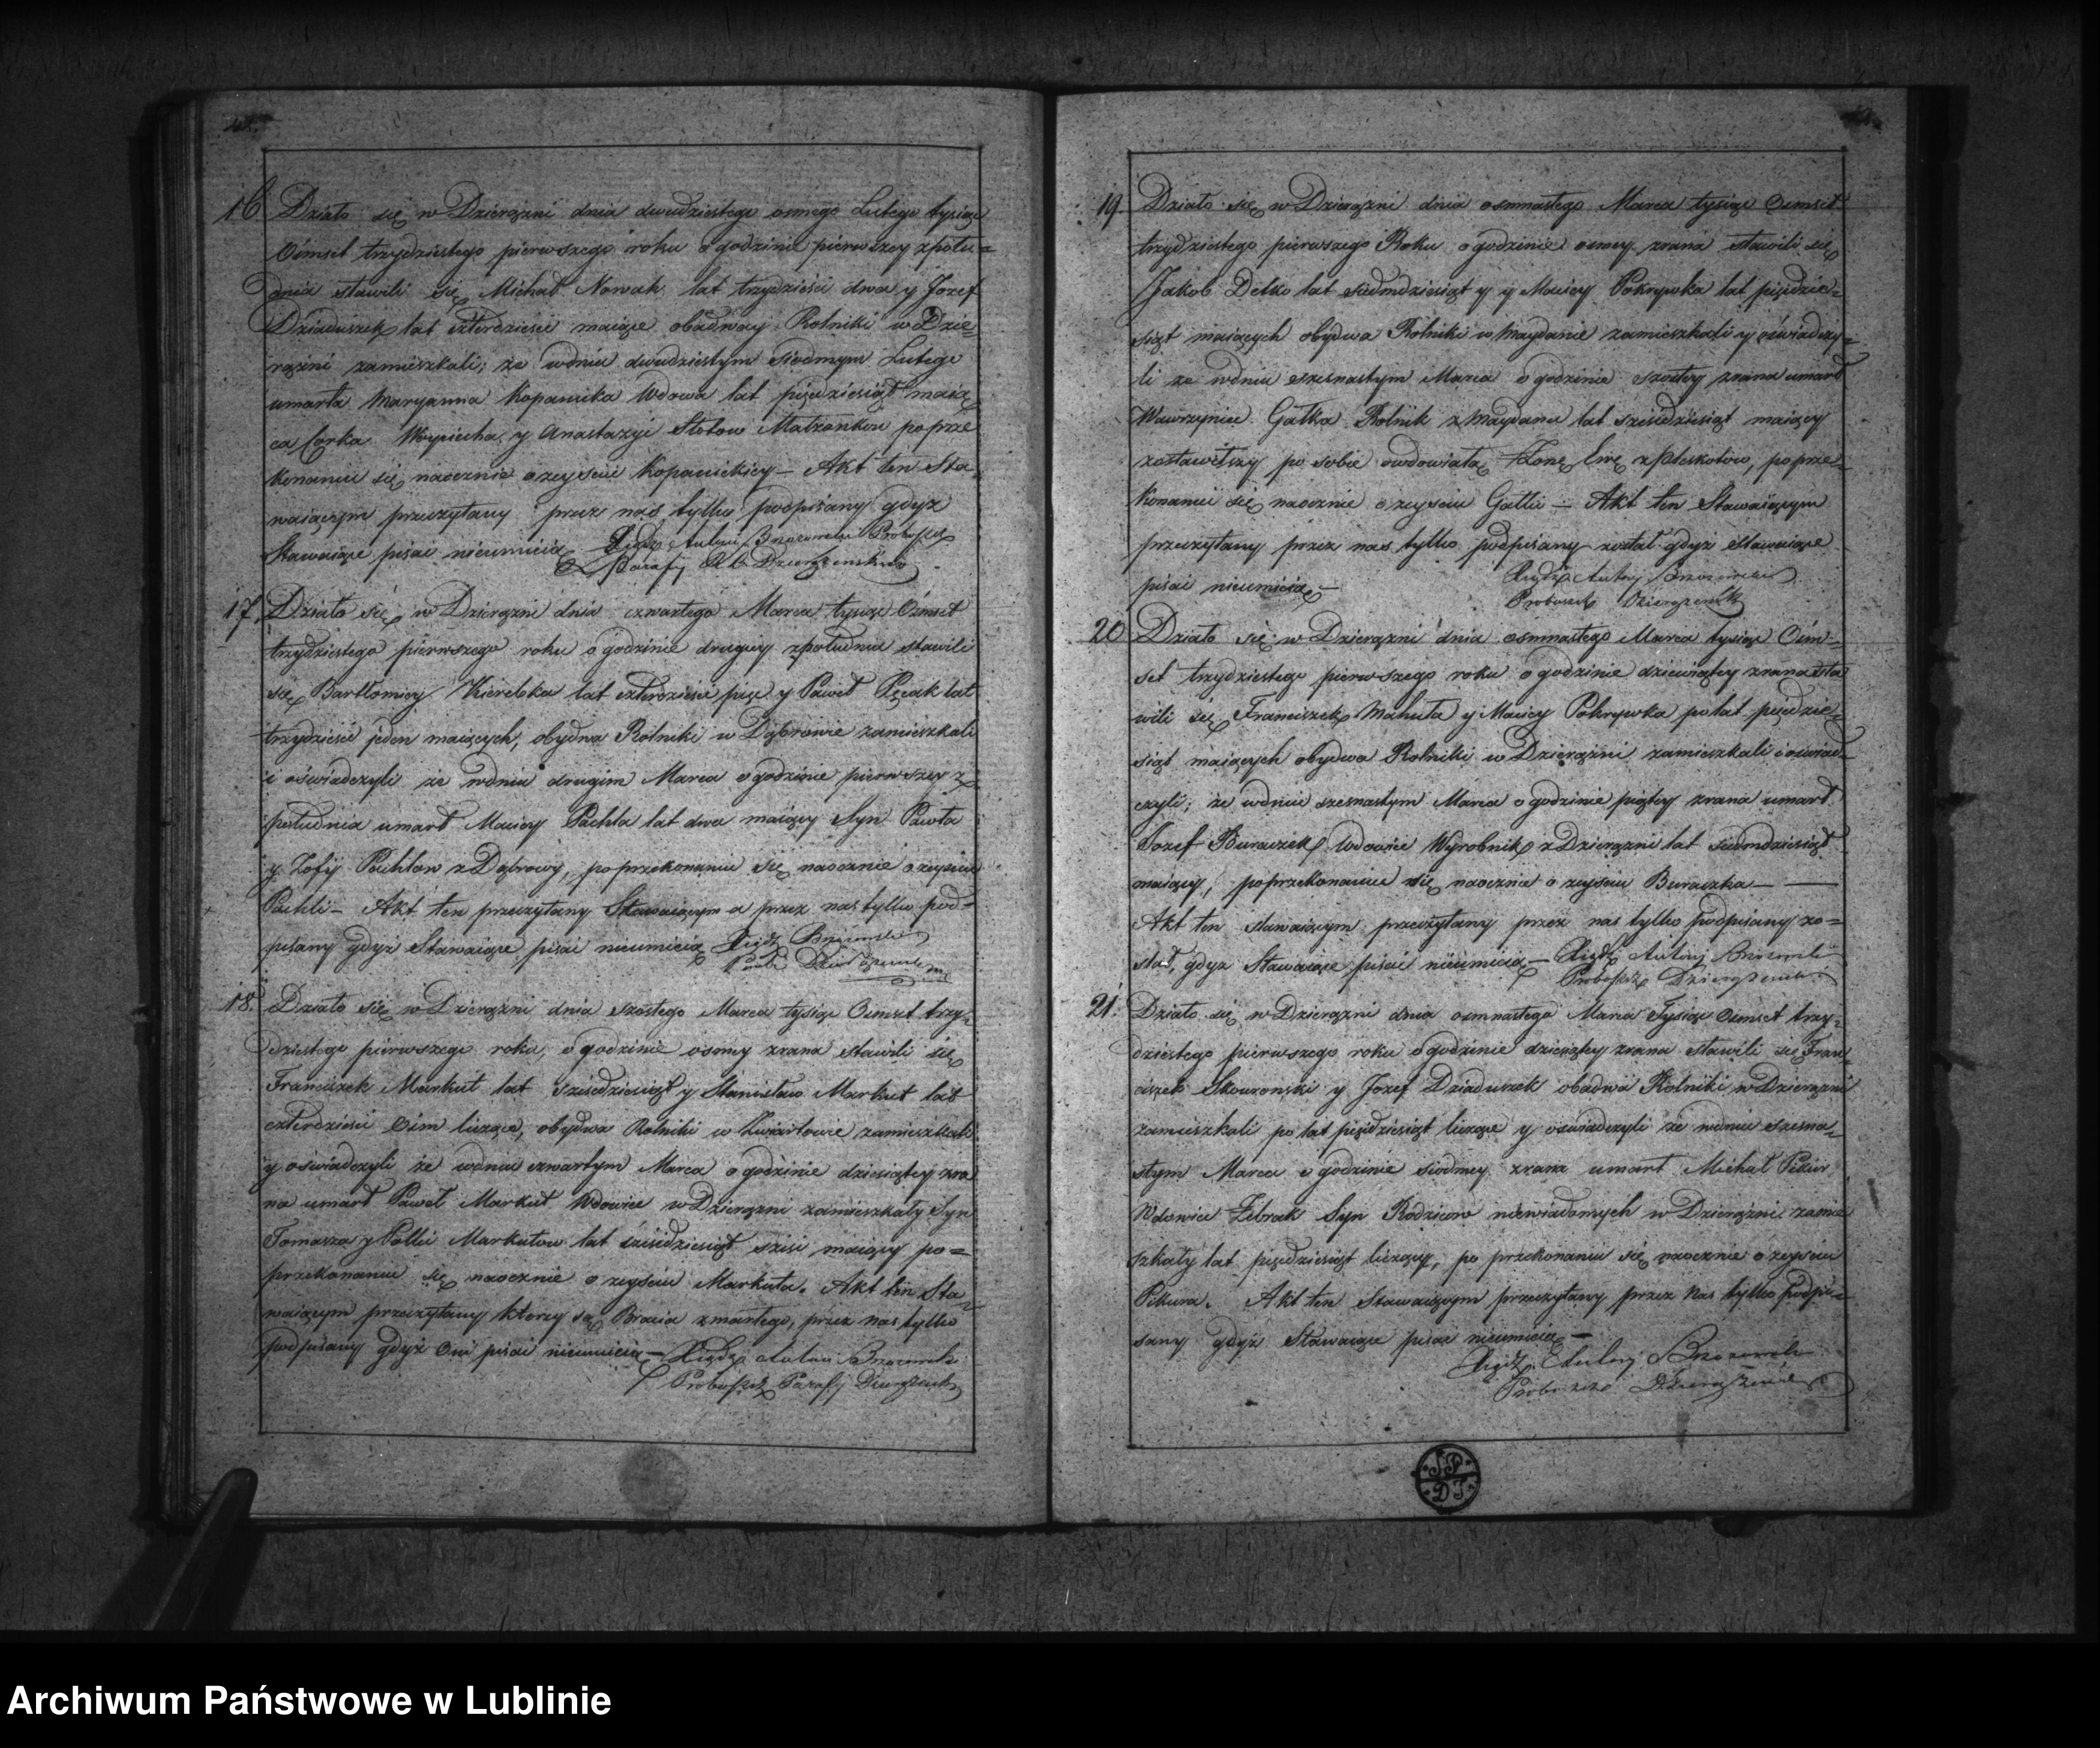 16 Działo się w Dzierążni dnia dwudziestego osmego Lutego tysiąc
Ośmset trzydziestego pierwszego roku o godzinie pierwszey z połu=
dnia stawili się Michał Nowak lat trzydzieści dwa y Jozef
Dziaduszek lat czterdzieści maiące obadway Rolniki w Dzie=
rążni zamieszkali; że w dniu dwudziestym siodmym Lutego
umarła Maryanna Kopanicka Wdowa lat pięćdziesiąt maią
ca Corka Woyciecha y Anastazyi Małzonkow po prze
konaniu się naocznie o zeyściu Kopanickiey – Akt ten Sta
waiącym przeczytany przez nas tylko podpisany gdyz
Stawaiące pisac nieumieią Xiądz Antoni Brzozowski Proboszcz
Parafy
17. Działo się w Dzierążni dnia czwartego Marca tysiąc Ośmset
trzydziestego pierwszego roku o godzinie drugiey z południa stawili
się Bartłomiey lat czterdzieści pięć y Paweł Pęcak lat
trzydzieści jeden maiących, obydwa Rolniki w Dąbrowie zamieszkali
i oświadczyli że w dniu drugim Marca o godzinie pierwszey z
południa umarł Maciey Pachla lat dwa maiący Syn Pawła
y Zofij Pachlow z Dąbrowy, po przekonaniu się naocznie o zeysciu
Pachli – Akt ten przeczytany Stawaiącym a przez nas tylko pod=
pisany gdyż Stawaiące pisać nieumieią Xiądz Brzozowski
18. Działo się w Dzierążni dnia szóstego Marca tysiąc Osmset trzy=
dziestego pierwszego roku, o godzinie osmey zrana stawili się
Franciszek Markut lat sześćdziesiąt y Stanisław Markut lat
czterdzieści ośm liczące, obydwa Rolniki w zamieszkali
y oświadczyli że w dniu czwartym Marca o godzinie dziesiątey zra
na umarł Paweł Markut Wdowiec w Dzierążni zamieszkały Syn
Tomasza y Markutow lat sześćdziesiąt sześć maiący po=
przekonaniu się naocznie o zeyściu Markuta. Akt ten Sta=
waiącym przeczytany ktorzy są Bracia zmarłego, przez nas tylko
podpisany gdyż Oni pisać nieumieią – Xiądz Antoni Brzozowski
Proboszcz Parafij
19. Działo się w Dzierążni dnia osmnastego Marca tysiąc Osmset
trzydziestego pierwszego Roku o godzinie osmey zrana stawili się
Jakob Delko lat siedmdziesiąt y y Maciey Pokrywka lat pięćdzie=
siąt maiących obydwa Rolniki w Maydanie zamieszkali y oświadczy=
li ze w dniu szesnastym Marca o godzinie szostey zrana umarł
Wawrzyniec Gałka Rolnik z Maydanu lat sześćdziesiąt maiący
zostawiwszy po sobie owdowiałą Żonę Ewę z Pleskotow, po prze=
konaniu się naocznie o zeyściu Gałki – Akt ten Stawaiącym
przeczytany przez nas tylko podpisany został gdyż Stawaiące
pisać nieumieią – Xiądz Antoni Brzozowski
Proboszcz
20 Działo się w Dzierążni dnia osmnastego Marca tysiąc Ośm=
set trzydziestego pierwszego roku o godzinie dziewiątey zrana sta
wili się Franciszek Mahuta y Maciey Pokrywka po lat pięćdzie=
siąt maiących obydwa Rolniki w Dzierążni zamieszkali i oświad=
czyli; że w dniu szesnastym Marca o godzinie piątey zrana umarł
Jozef Buraczek Wdowiec Wyrobnik z Dzierążni lat siedmdziesiąt
maiący, po przekonaniu się naocznie o zeyściu Buraczka –
Akt ten stawaiącym przeczytany przez nas tylko podpisany zo=
stał, gdyz Stawaiące pisać nieumieią – Xiądz Antoni Brzozowski
Proboszcz
21. Działo się w Dzierążni dnia osmnastego Marca Tysiąc Osmset trzy=
dziestego pierwszego roku o godzinie dziesiątey zrana stawili się Fran=
ciszek Skowronski y Jozef Dziaduszek obadwa Rolniki w Dzierążni
zamieszkali po lat pięćdziesiąt liczące y oświadczyli że w dniu szesna=
stym Marca o godzinie siodmey zrana umarł Michał Pikur
Wdowiec Żebrak Syn Rodzicow niewiadomych w Dzierążni zamie
szkały lat pięćdziesiąt liczący, po przekonaniu się naocznie o zeyściu
Pikura. Akt ten Stawaiącym przeczytany przez Nas tylko podpi=
sany gdyż Stawaiące pisać nieumieią –
Xiądz Antoni Brzozowski
Proboszcz
SP
DT
Archiwum Państwowe w Lublinie